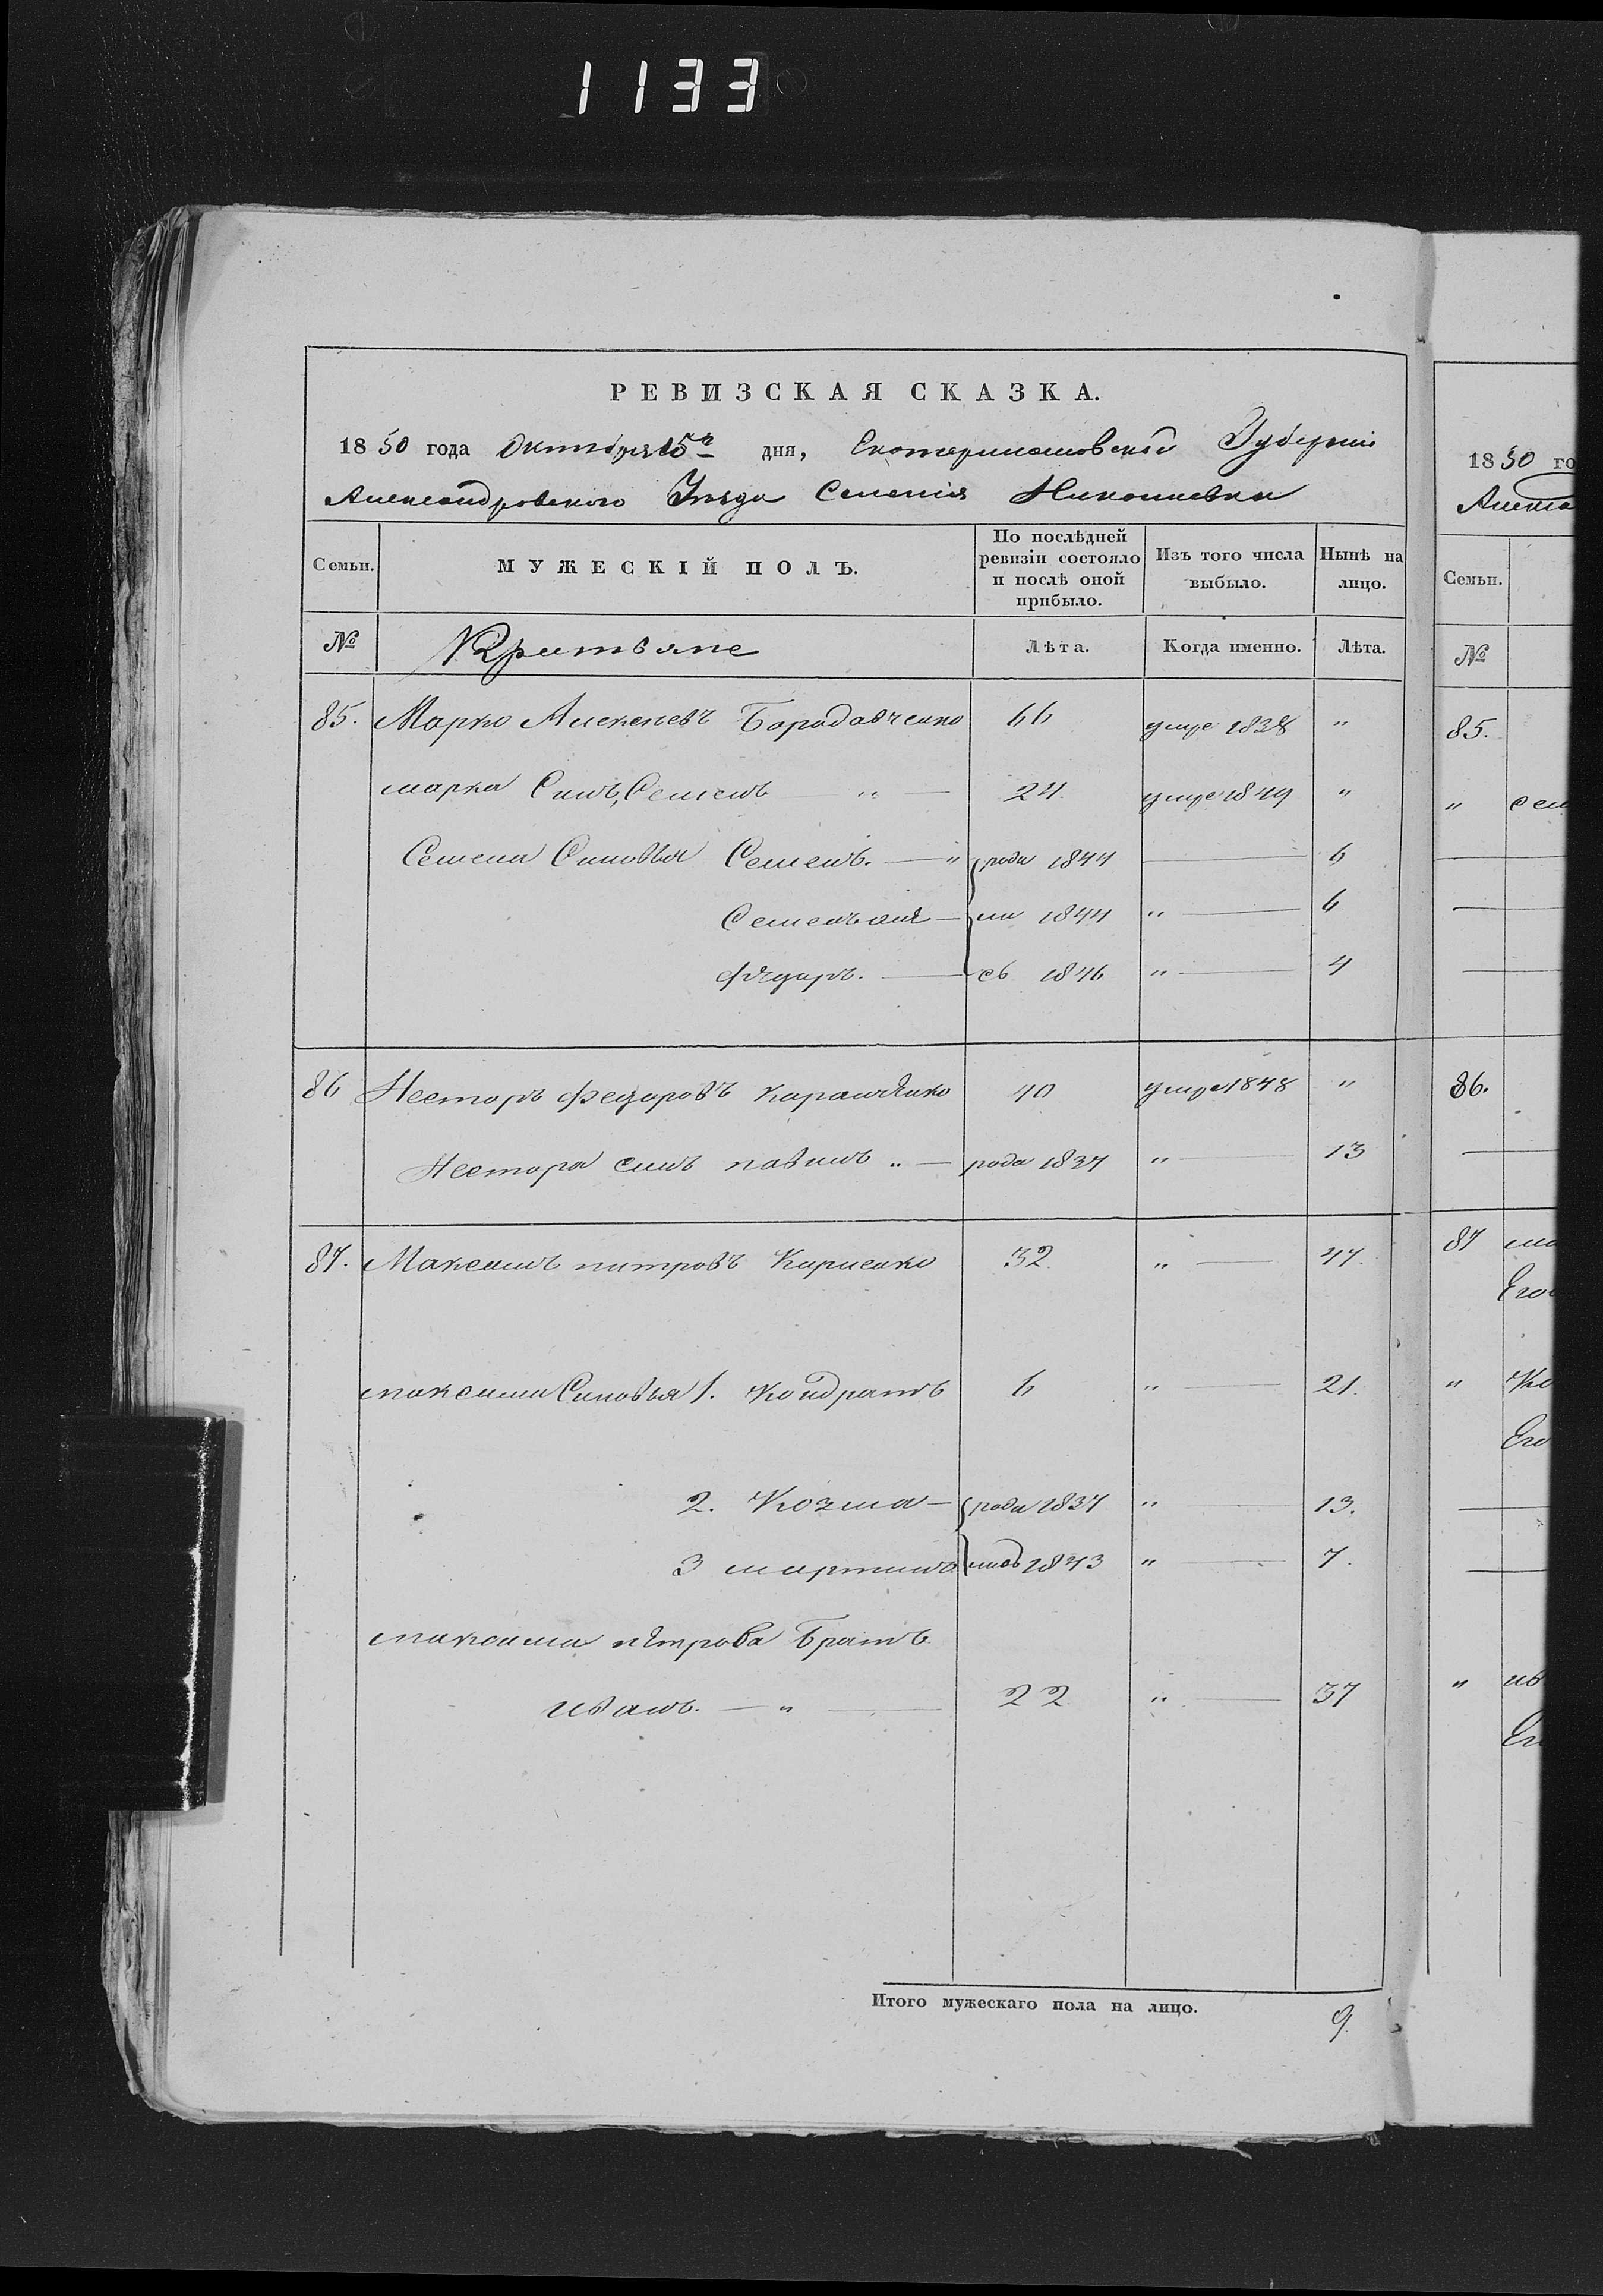 1133
РЕВИЗСКАЯ СКАЗКА.
1850 года Октября 15го дня, Екатеринославской Губернии
Александровского Уезда Селения Николаевки
Семьи. МУЖЕСКІЙ ПОЛЪ. По послѣдней ревизіи состояло и послѣ оной прибыло. Изъ того числа выбыло. Нынѣ на лицо.
№ Лѣта. Когда именно. Лѣта.
85. Марко Алексеевъ Бородавченко 66 умре 1838 "
марка Синъ, Семенъ " 24 умре 1849 "
Семена Синовья Семенъ. " роди 1844 6
ли 1844 " 6
Фѣдоръ. сь 1846 " 4
86 Несторъ Федоровъ 40 умре 1848 "
Нестора синъ " рода 1837 " 13
87. Максимъ питровъ Кириенко 32. " 47.
максима Синовья 1. Кондратъ 6 " 21.
2. Козма роди 1837 " 13.
3 мартинъ лись 1843 " 7.
максима пѣтрова Братъ
иванъ. " 22 " 37
Итого мужескаго пола на лицо. 9.
1850 го
Семьи.
№
85.
" сем
86.
87
Его
"
Его
"